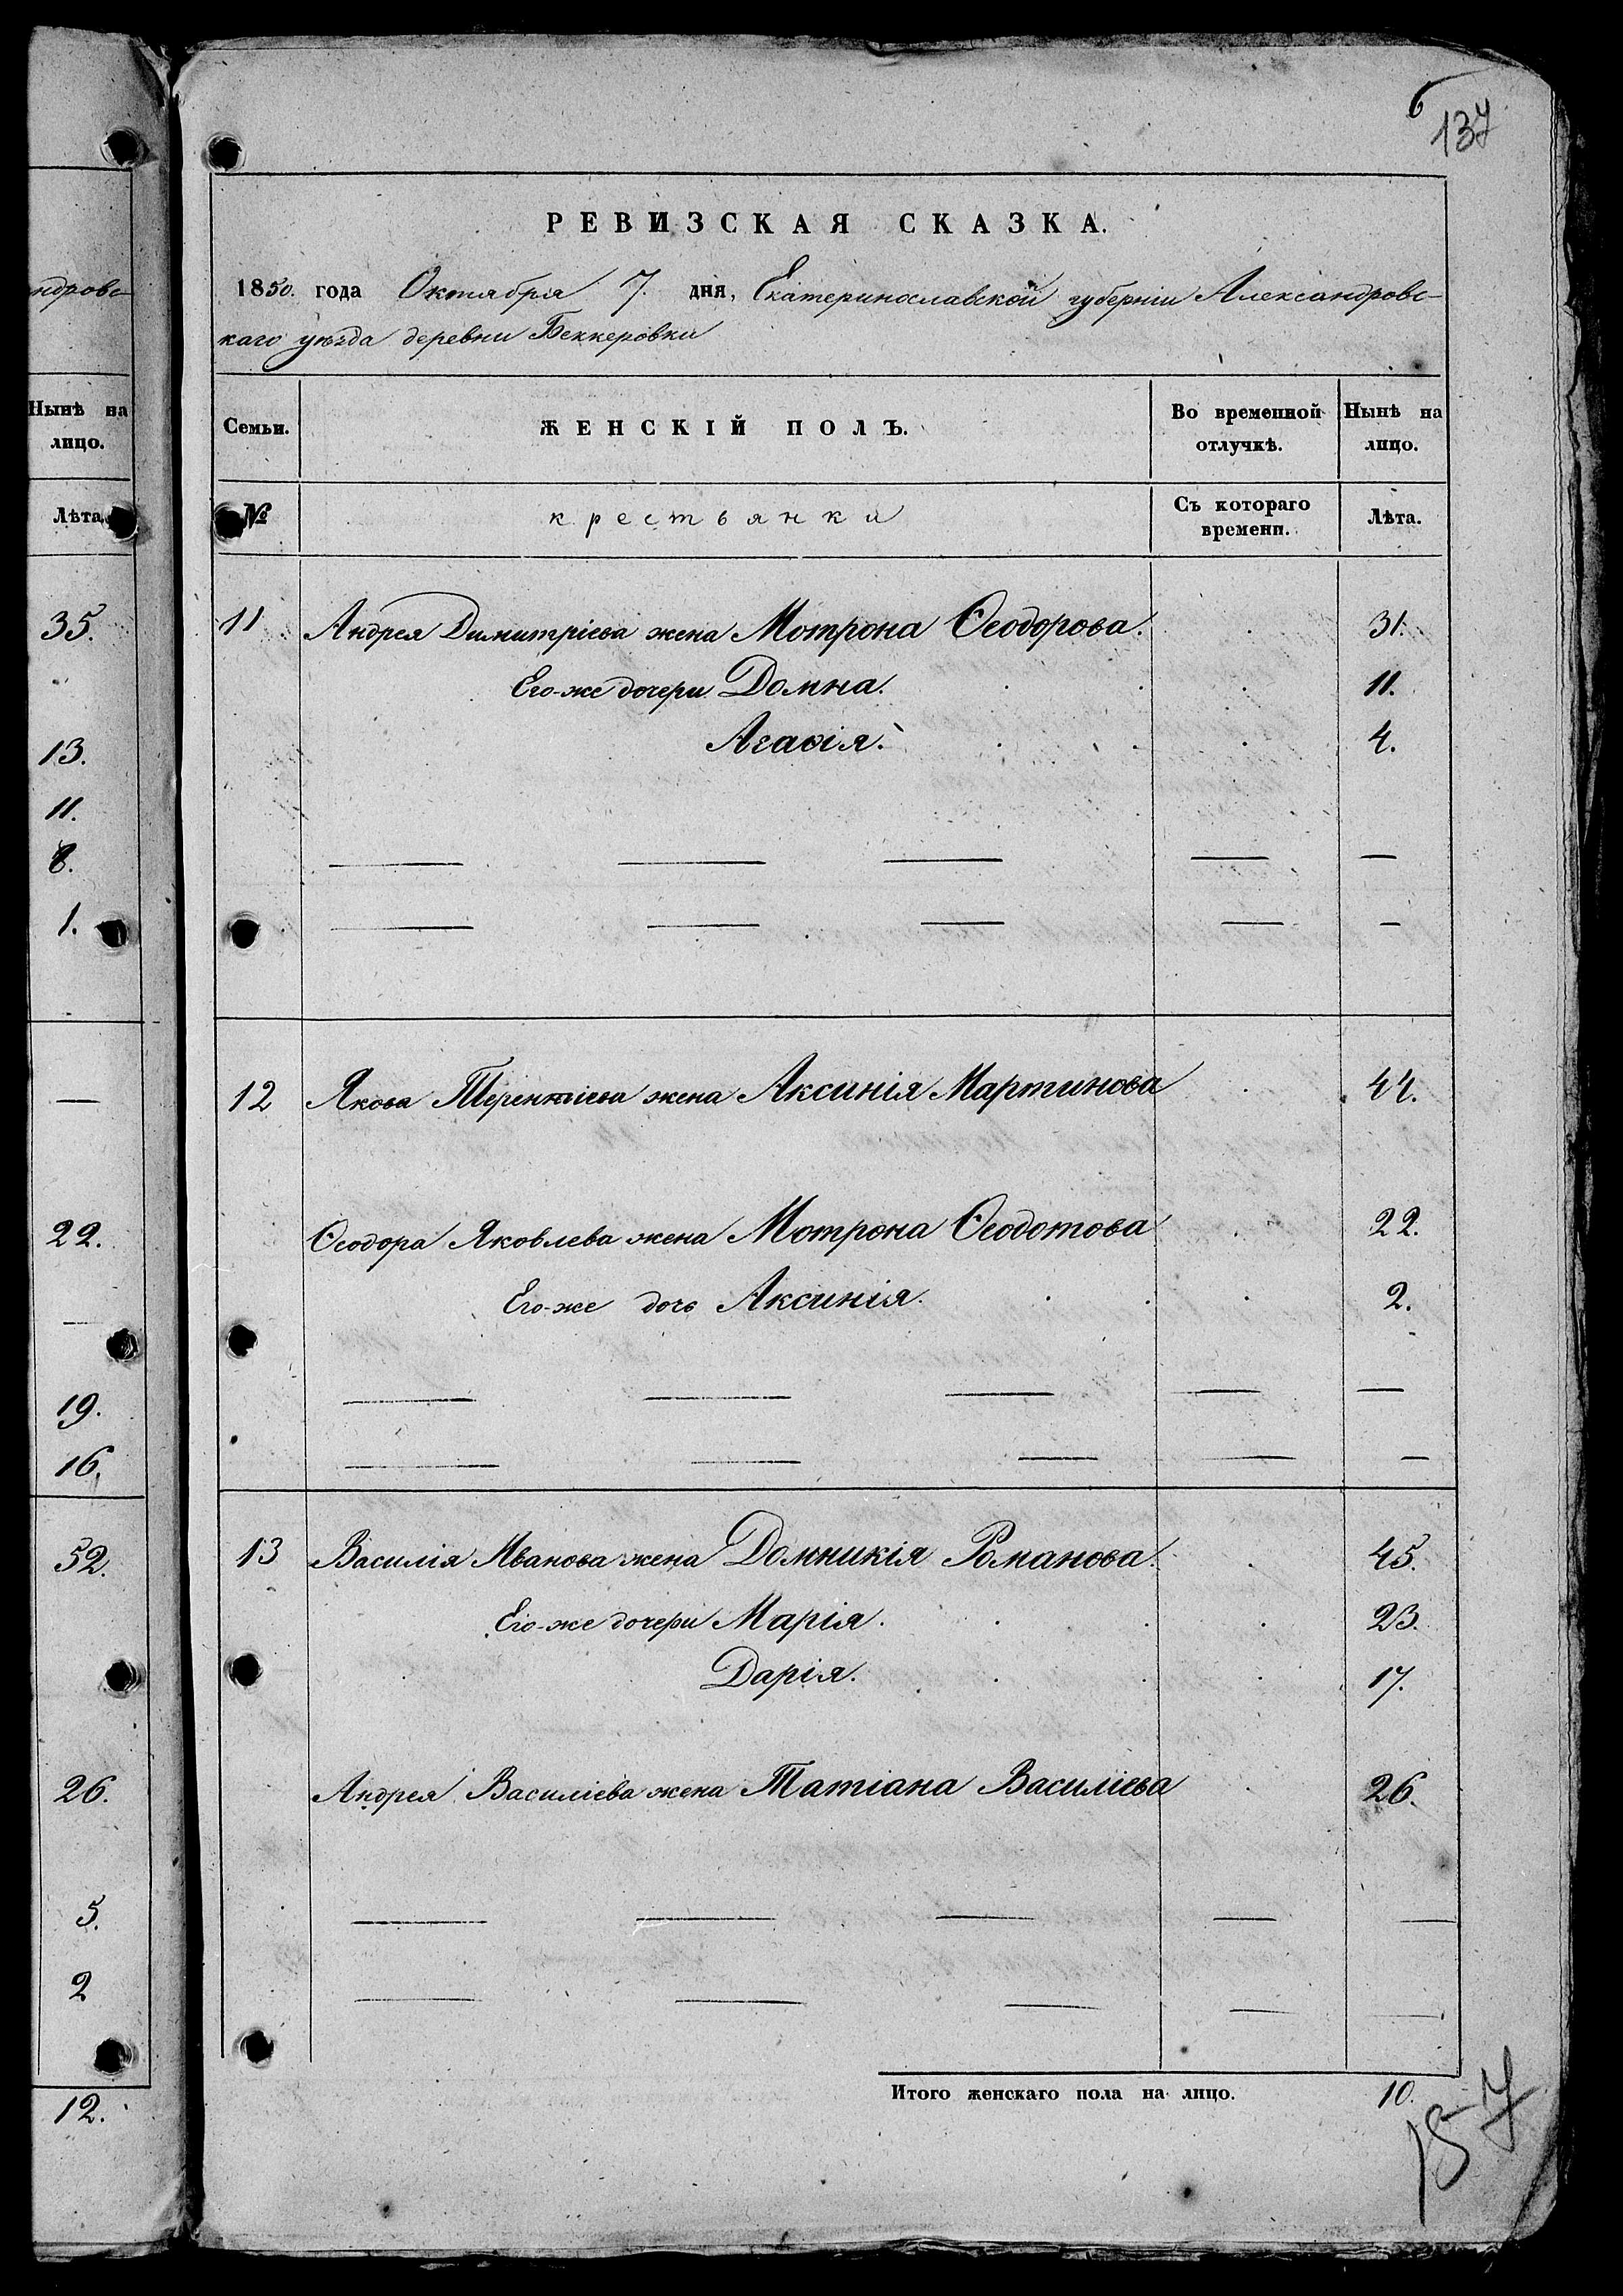 6
137
РЕВИЗСКАЯ СКАЗКА.
1850. года Октября 7. дня, Екатеринославской губерніи Александровс-
каго уѣзда деревни Беккеровки
Семьи.
ЖЕНСКІЙ ПОЛЪ.
Во временной отлучкѣ.
Нынѣ на лицо.
№
крестьянки
Съ котораго времени.
Лѣта.
11 Андрея Димитріева жена Мотрона Ѳеодорова. 31.
Его-же дочери Домна. 11.
Агаѳія. 4.
12 Якова Терентіева жена Аксинія Мартинова 44.
Ѳеодора Яковлева жена Мотрона Ѳеодотова 22.
Его-же дочь Аксинія. 2.
13 Василія Иванова жена Домникія Романова. 45.
Его-же дочери Марія. 23.
Дарія. 17.
Андрея Василіева жена Татіана Василіева 26.
Итого женскаго пола на лицо. 10.
157
ндровс
Нынѣ на
лицо.
Лѣта.
35.
13.
11.
8.
1.
22.
19.
16.
52.
26.
5.
2
12.